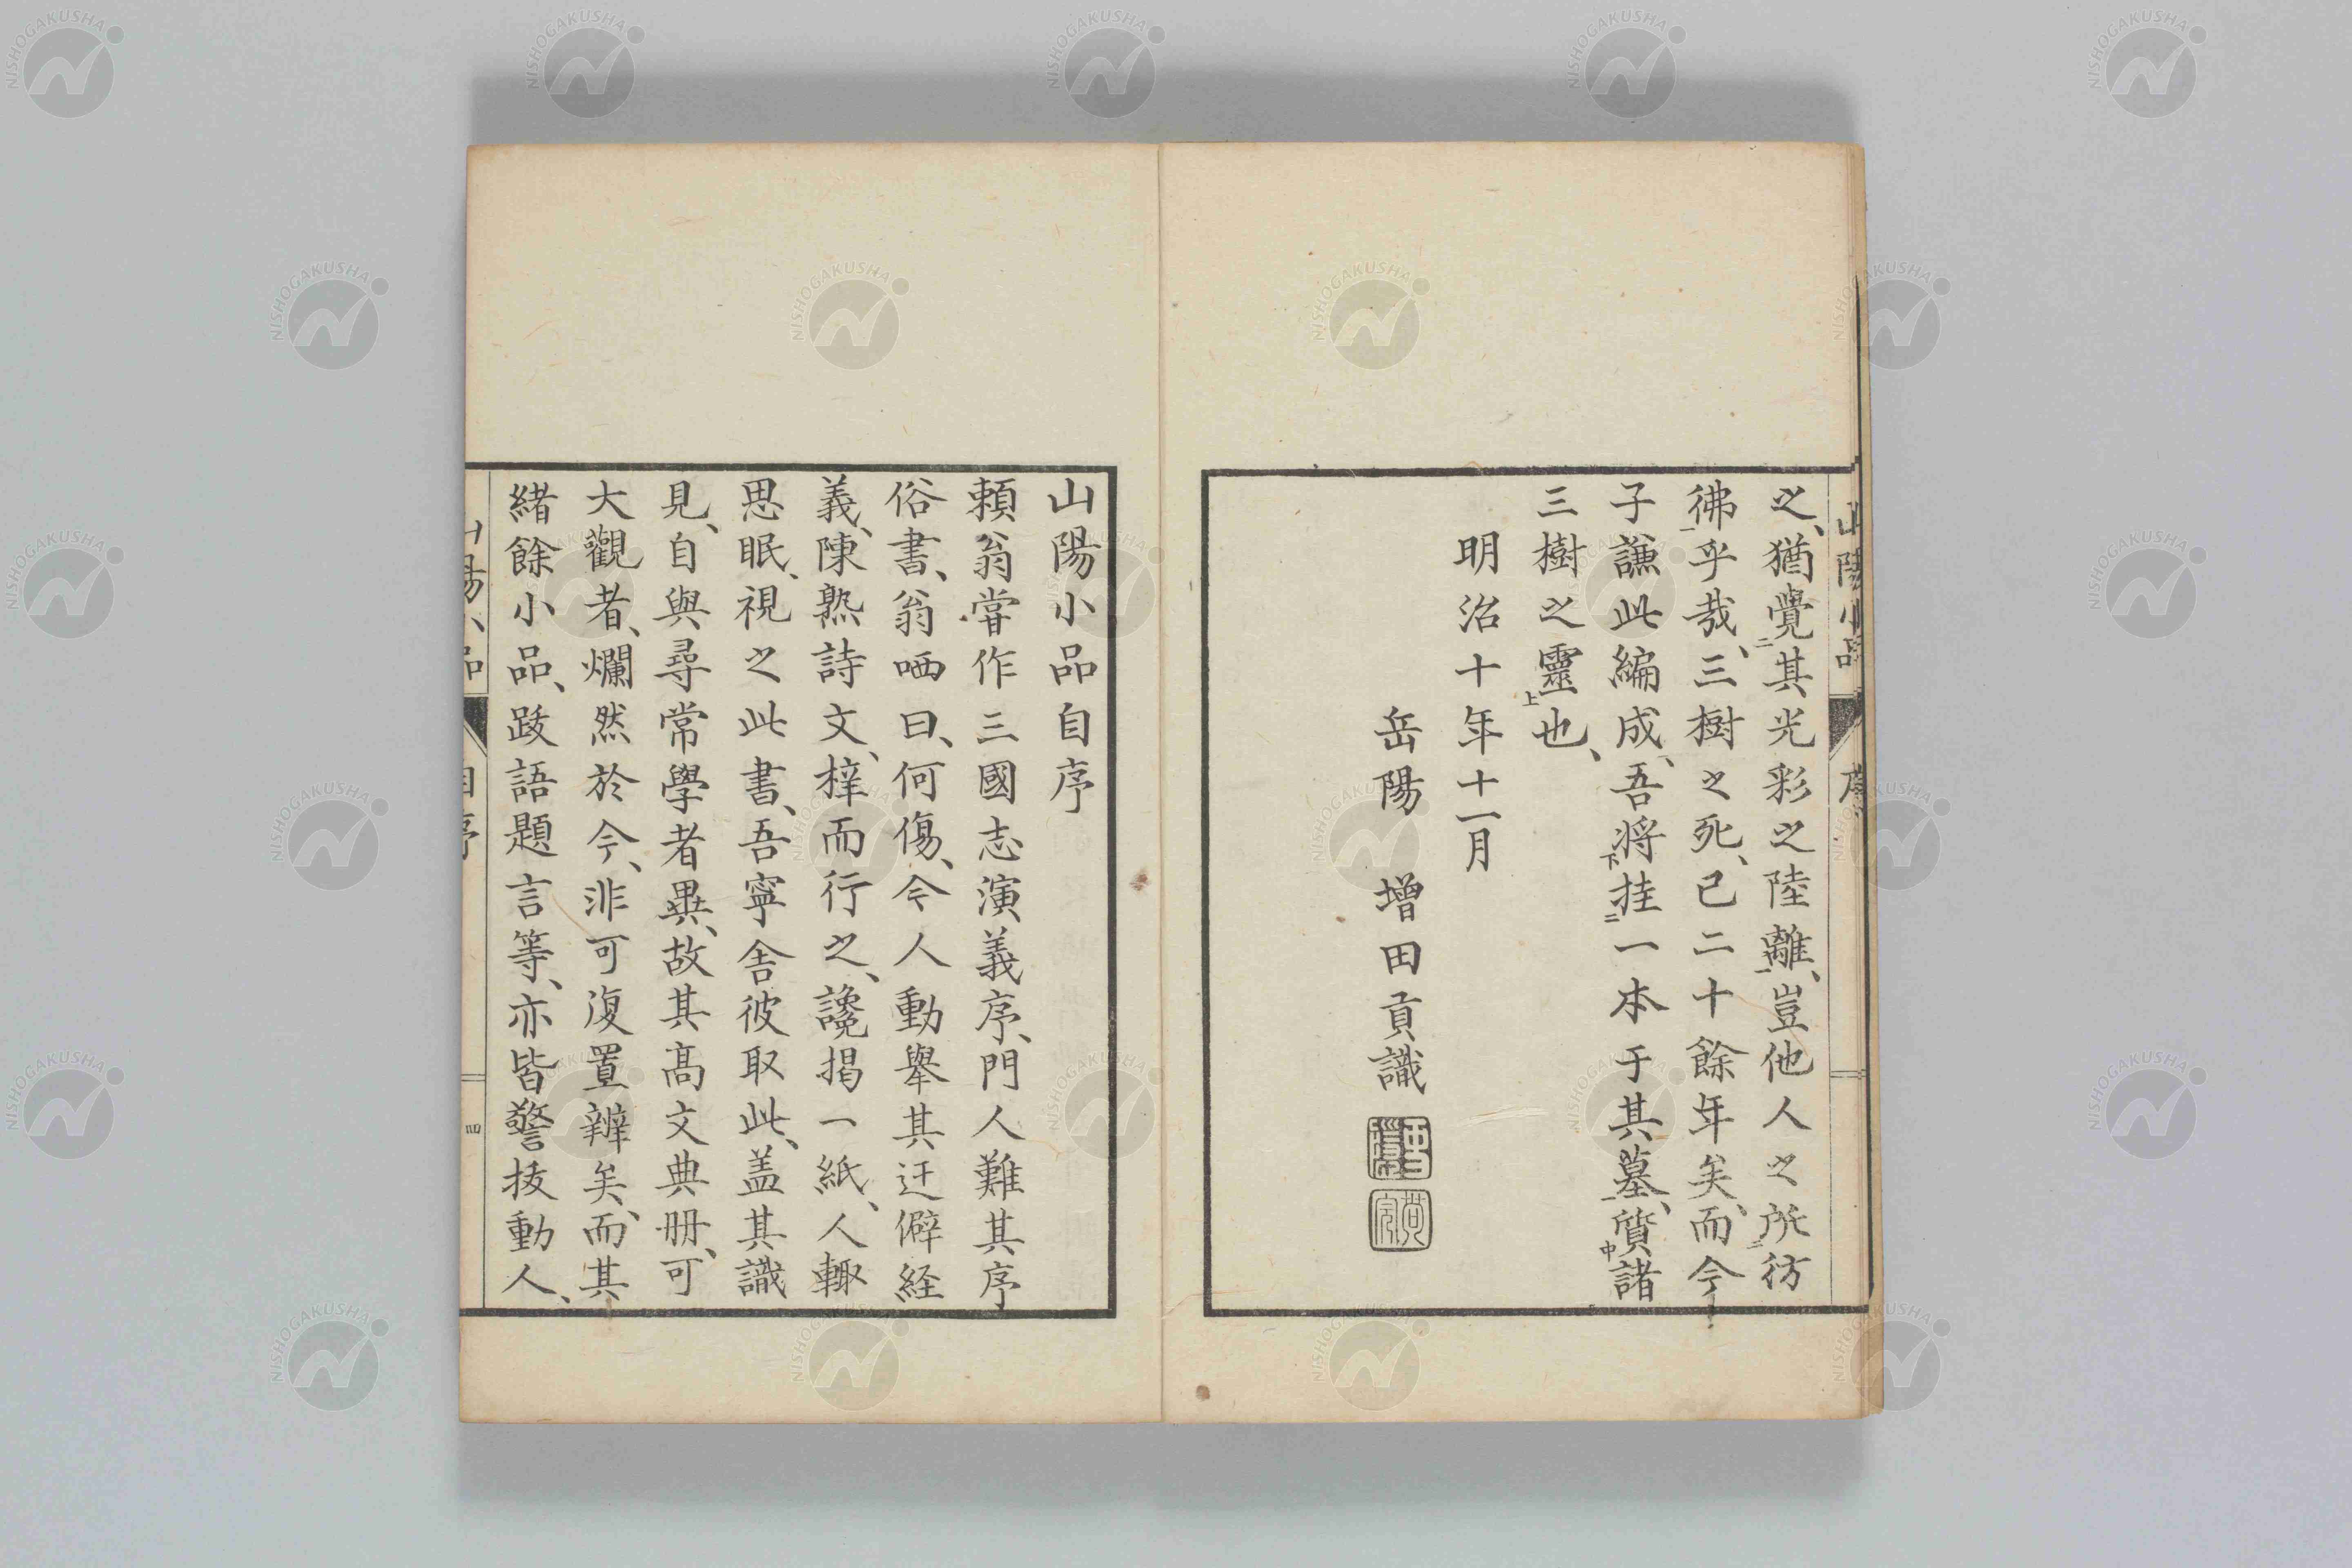 之、猶覺二其光彩之陸離一、豈他人之所二彷
彿一乎哉、三樹之死、已二十餘年矣、而今
子謙此編成、吾將下挂二一本于其墓一、質中諸
三樹之靈上也、
明治十年十一月
岳陽 增田貢識
山陽小品
序
山陽小品自序
賴翁嘗作三國志演義序、門人難其序
俗書、翁哂曰、何傷、今人動舉其迂僻経
義、陳熟詩文、梓而行之、讒揭一紙、人輙
思眠、視之此書、吾寧舎彼取此、盖其識
見、自與尋常學者異、故其髙文典冊、可
大觀者、爛然於今、非可復置辨矣、而其
緒餘小品、跋語題言等、亦皆警抜動人、
山陽小品
自序
四
NISHOGAKUSHA